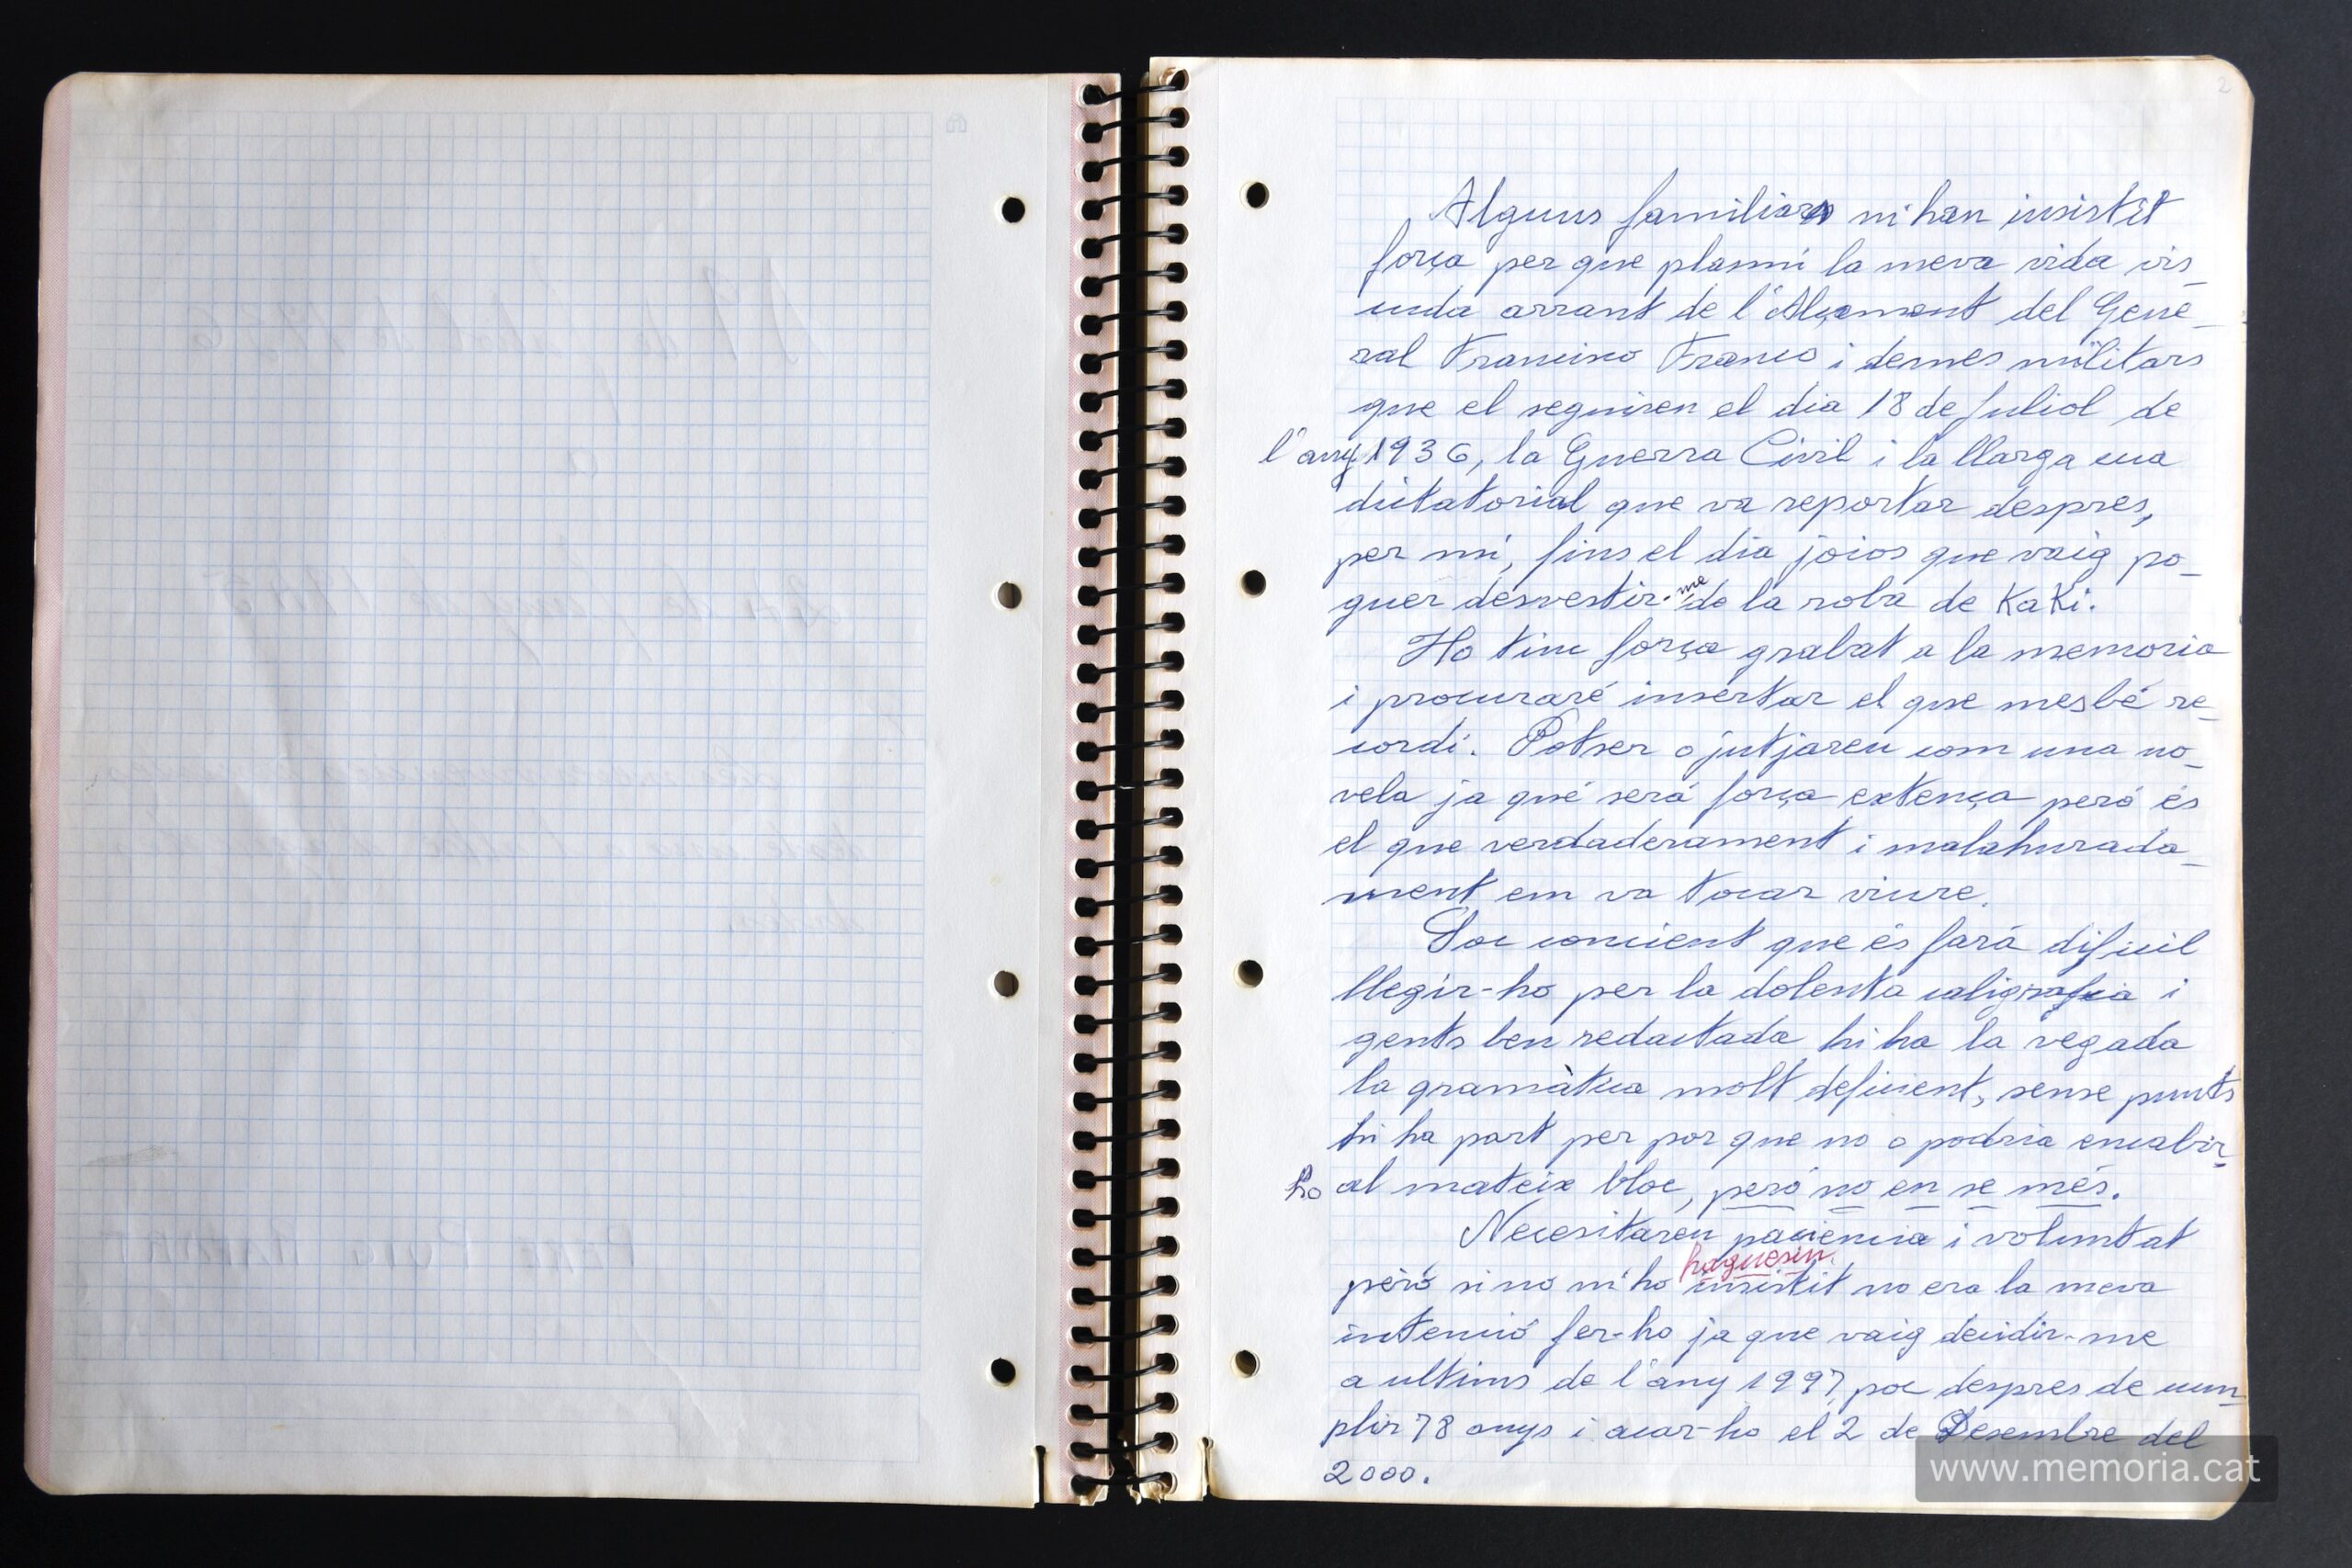 2
Alguns familiars m'han insistit
força per que plasmi la meva vida vis
cuda arrant de l'Alçament del Gene-
ral Francisco Franco i demes militars
que el seguiren el dia 18 de Juliol de
l'any 1936, la Guerra Civil i la llarga cua
dictatorial que va reportar despres,
per mi, fins el dia joios que vaig po-
guer desvestir-me de la roba de KaKi.
Ho tinc força grabat a la memoria
i procuraré insertar el que mesbé re-
cordi. Potser o jutjareu com una no-
vela ja qué será força extença peró és
el que verdaderament i malahurada-
ment em va tocar viure.
Soc concient que és fará dificil
llegir-ho per la dolenta caligrafia i
gents ben redactada hi ha la vegada
la gramàtica molt deficient, sense punts
hi ha part per por que no o podria encabir-
ho al mateix bloc, peró no en se més.
Necesitareu paciencia i voluntat
peró si no m'ho haguesin insistit no era la meva
intenció fer-ho ja que vaig decidir-me
a ultims de l'any 1997, poc despres de cum-
plir 78 anys i acar-ho el 2 de Desembre del
2000.
www.memoria.cat